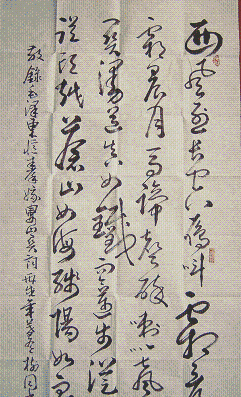 西風烈長空雁叫霜晨
霜晨月馬蹄聲碎喇叭聲
關漫道真如鐵而今邁步從
從頭越蒼山如海殘陽如血
敬錄毛澤東憶秦娥婁山關詞